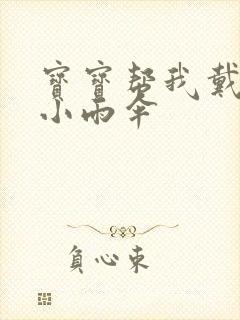 寶寶幫我戴
小雨伞
負心東